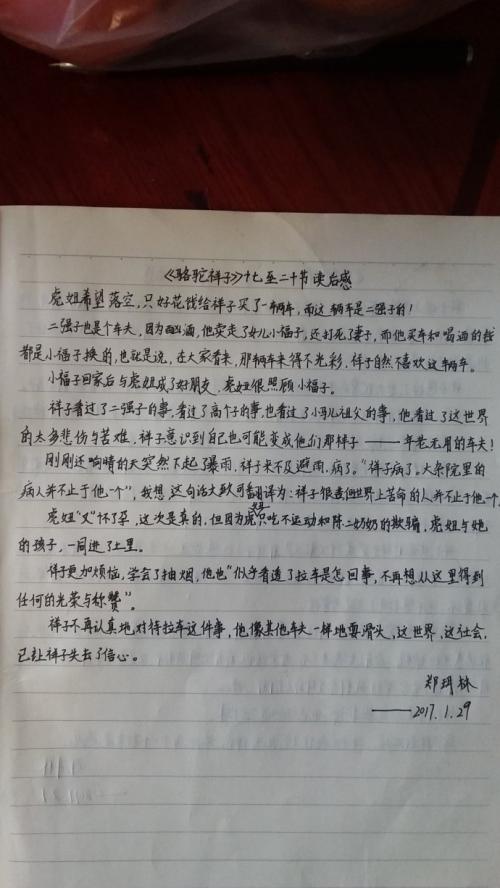 《骆驼祥子》十七至二十节读后感
虎妞希望落空，只好花钱给祥子买了一辆车，而这辆车是二强子的！
二强子也是个车夫，因为酗酒，他卖走了女儿小福子，还打死了妻子，而他买车和喝酒的钱
都是小福子换的，也就是说，在大家看来，那辆车来得不光彩，祥子自然不喜欢这辆车。
小福子回家后与虎妞成了好朋友，虎妞很照顾小福子。
祥子看过了二强子的事，看过了高个子的事，也看过了小马儿祖父的事，他看过了这世界
的太多悲伤与苦难，祥子意识到自己也可能变成他们那样子——年老无用的车夫！
刚刚还响晴的天突然下起暴雨，祥子来不及避雨，病了。“祥子病了，大杂院里的
病人并不止于他一个”，我想这句话大致可翻译为：祥子很苦但世界上苦命的人并不止于他一个。
虎妞“又”怀了孕，这次是真的，但因为虎妞只吃不运动和陈二奶奶的欺骗，虎妞与她
的孩子，一同进了土里。
祥子更加烦恼，学会了抽烟，他也“似乎看透了拉车是怎回事，不再想从这里得到
任何的光荣与称赞”。
祥子不再认真地对待拉车这件事，他像其他车夫一样地耍滑头，这世界，这社会，
已让祥子失去了信心。
郑玥林
——2017.1.29